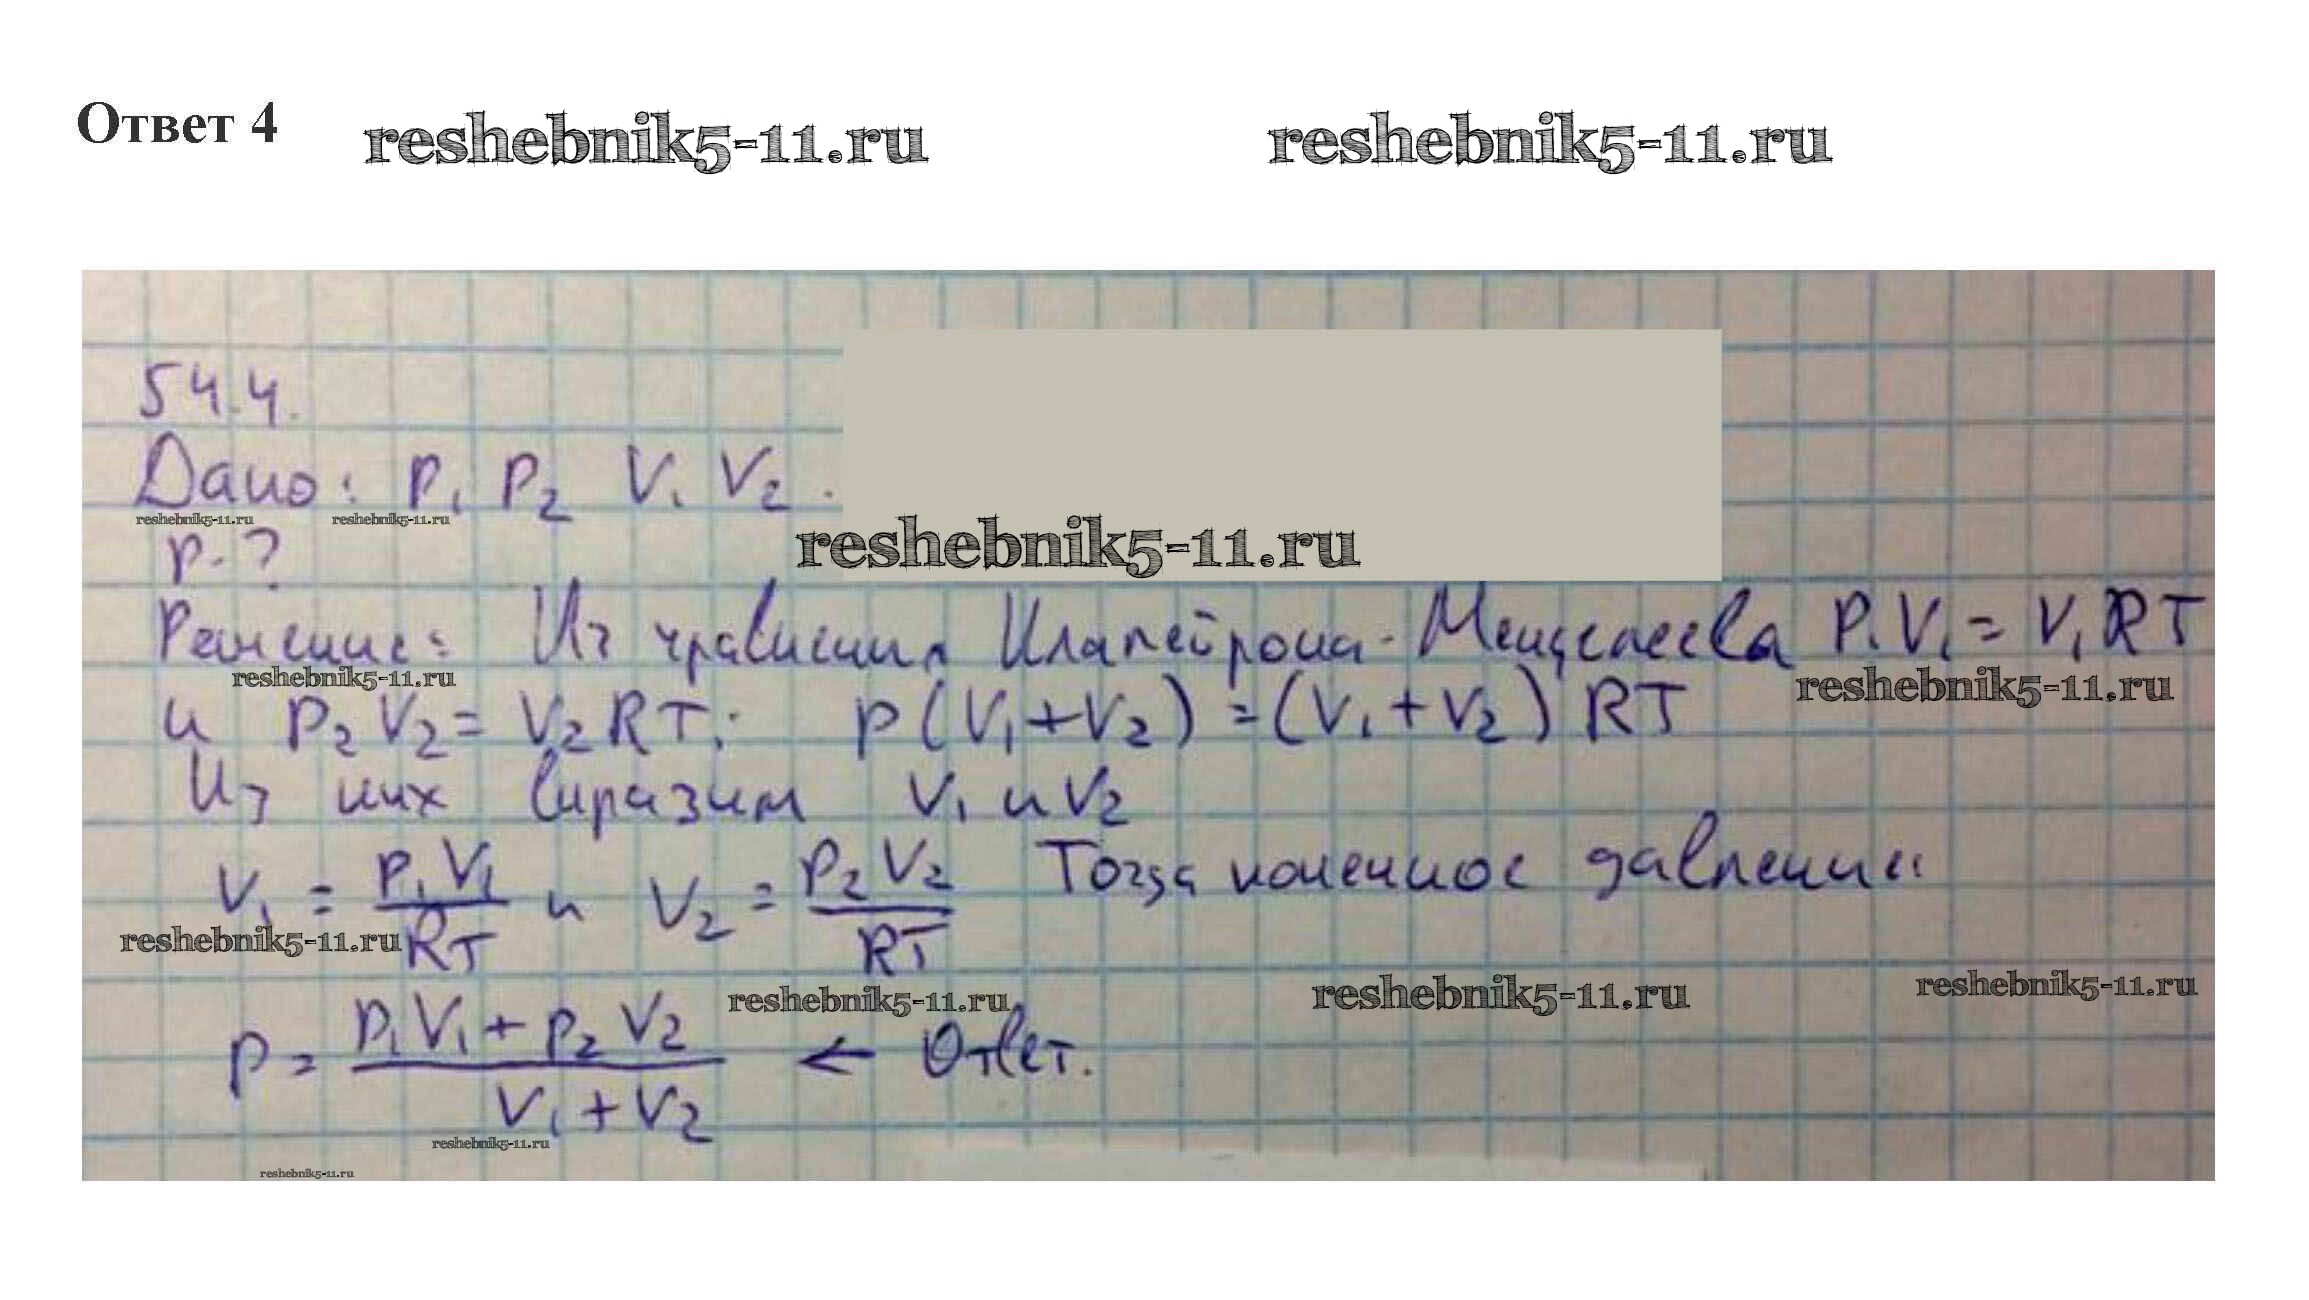 Ответ 4 reshebnik5-11.ru reshebnik5-11.ru
54.4.
Дано: p₁ p₂ V₁ V₂.
reshebnik5-11.ru reshebnik5-11.ru
reshebnik5-11.ru
p-?
Решение: Из уравнения Клапейрона-Менделеева P₁V₁ = V₁RT
reshebnik5-11.ru reshebnik5-11.ru
и P₂V₂ = V₂RT; p(V₁+V₂) = (V₁+V₂)RT
Из них выразим V₁ и V₂
V₁ = p₁V₁/RT и V₂ = p₂V₂/RT Тогда конечное давление:
reshebnik5-11.ru
reshebnik5-11.ru reshebnik5-11.ru reshebnik5-11.ru
p = (p₁V₁ + p₂V₂)/(V₁ + V₂) ← Ответ.
reshebnik5-11.ru
reshebnik5-11.ru